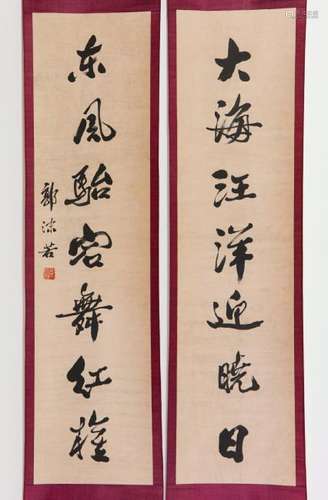 大海汪洋迎曉日
东風駘宕舞紅旗
郭沫若